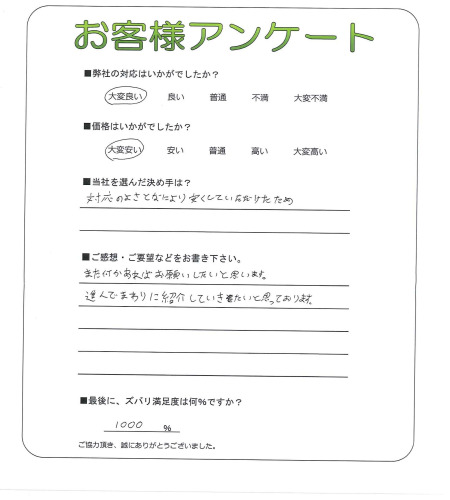 お客様アンケート
■弊社の対応はいかがでしたか?
大変良い 良い 普通 不満 大変不満
■価格はいかがでしたか?
大変安い 安い 普通 高い 大変高い
■当社を選んだ決め手は?
対応のよさとなにより安くしていただけたため
■ご感想・ご要望などをお書き下さい。
また何かあればお願いしたいと思います。
進んでまわりに紹介していきたいと思っております。
■最後に、ズバリ満足度は何%ですか?
1000 %
ご協力頂き、誠にありがとうございました。